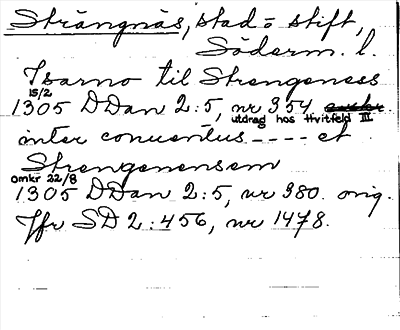 Strängnäs, stad o stift,
Söderm. l.
Isarno til Strengeness
15/2
1305 DDan 2:5, nr 354
utdrag hos Hvitfeld III
inter conuentus ---- et
Strengenensem
omkr 22/8
1305 DDan 2:5, nr 380. orig.
Jfr SD 2:456, nr 1478.